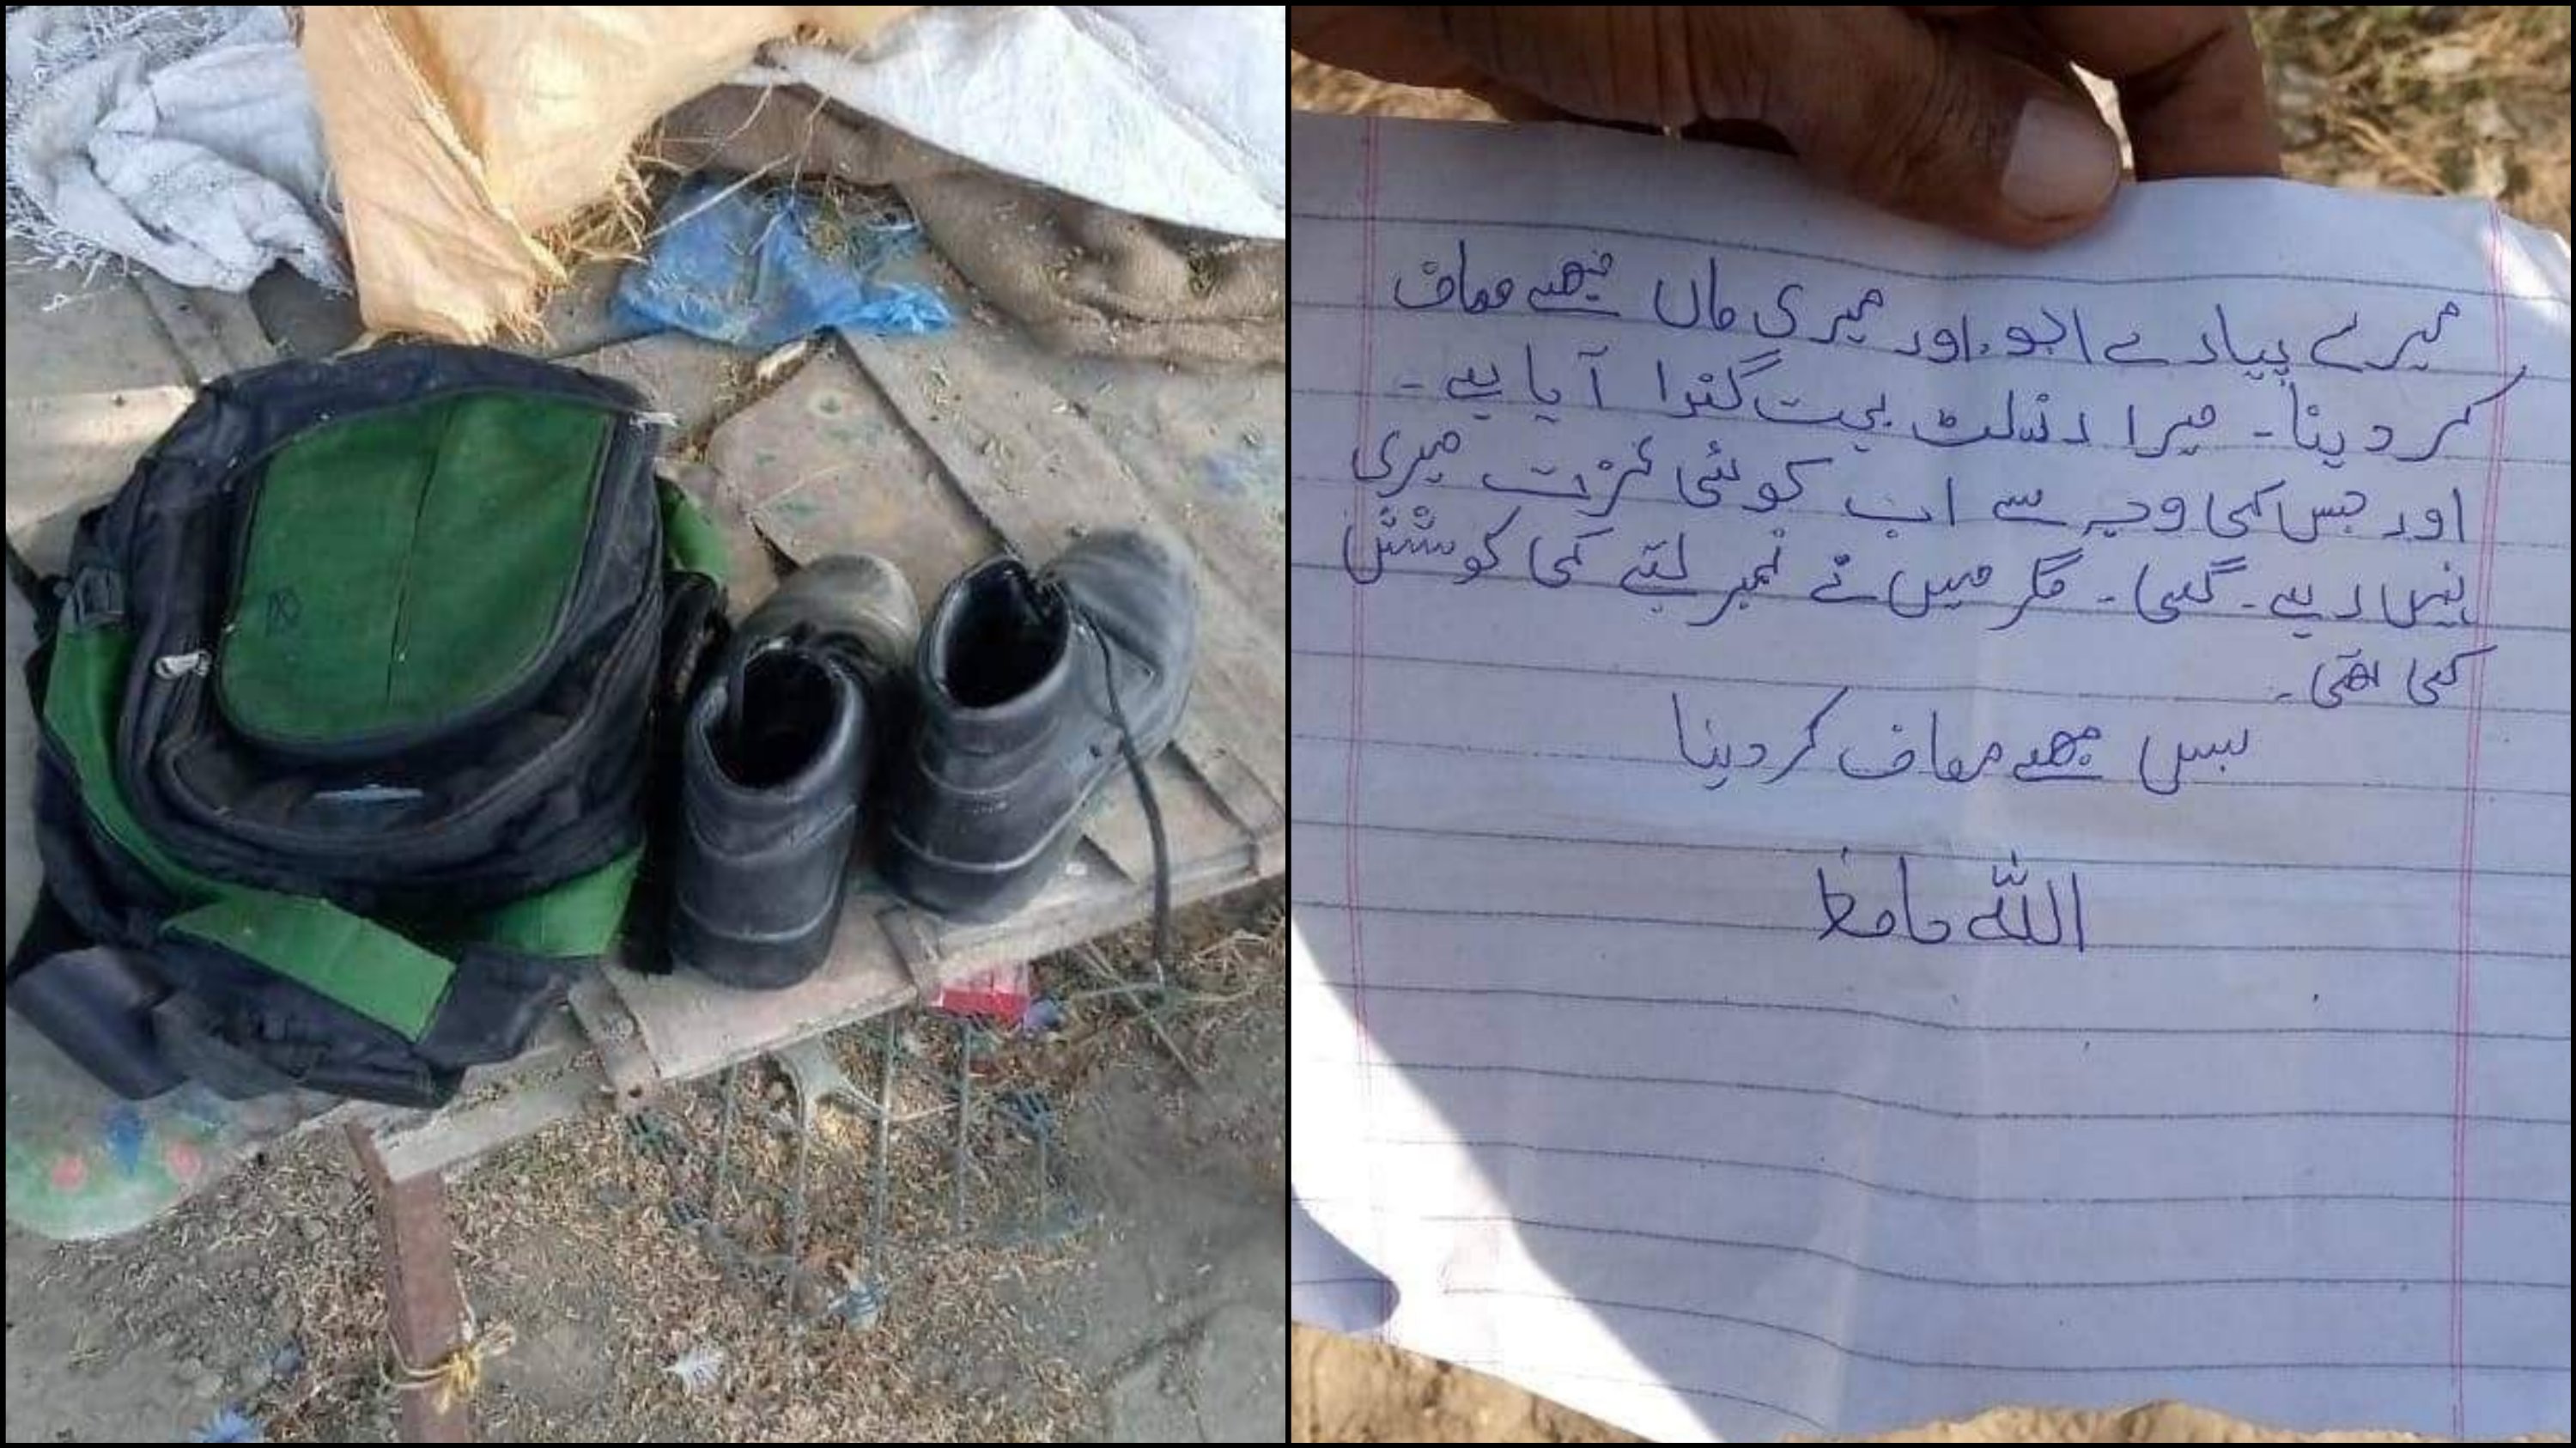 میرے پیارے ابو، اور میری ماں مجھے معاف
کر دینا۔ میرا رزلٹ بہت گندا آیا ہے۔
اور جس کی وجہ سے اب کوئی عزت میری
نہیں رہے۔ گئی۔ مگر میں نے نمبر لینے کی کوشش
کی تھی۔
بس مجھے معاف کر دینا
اللہ حافظ